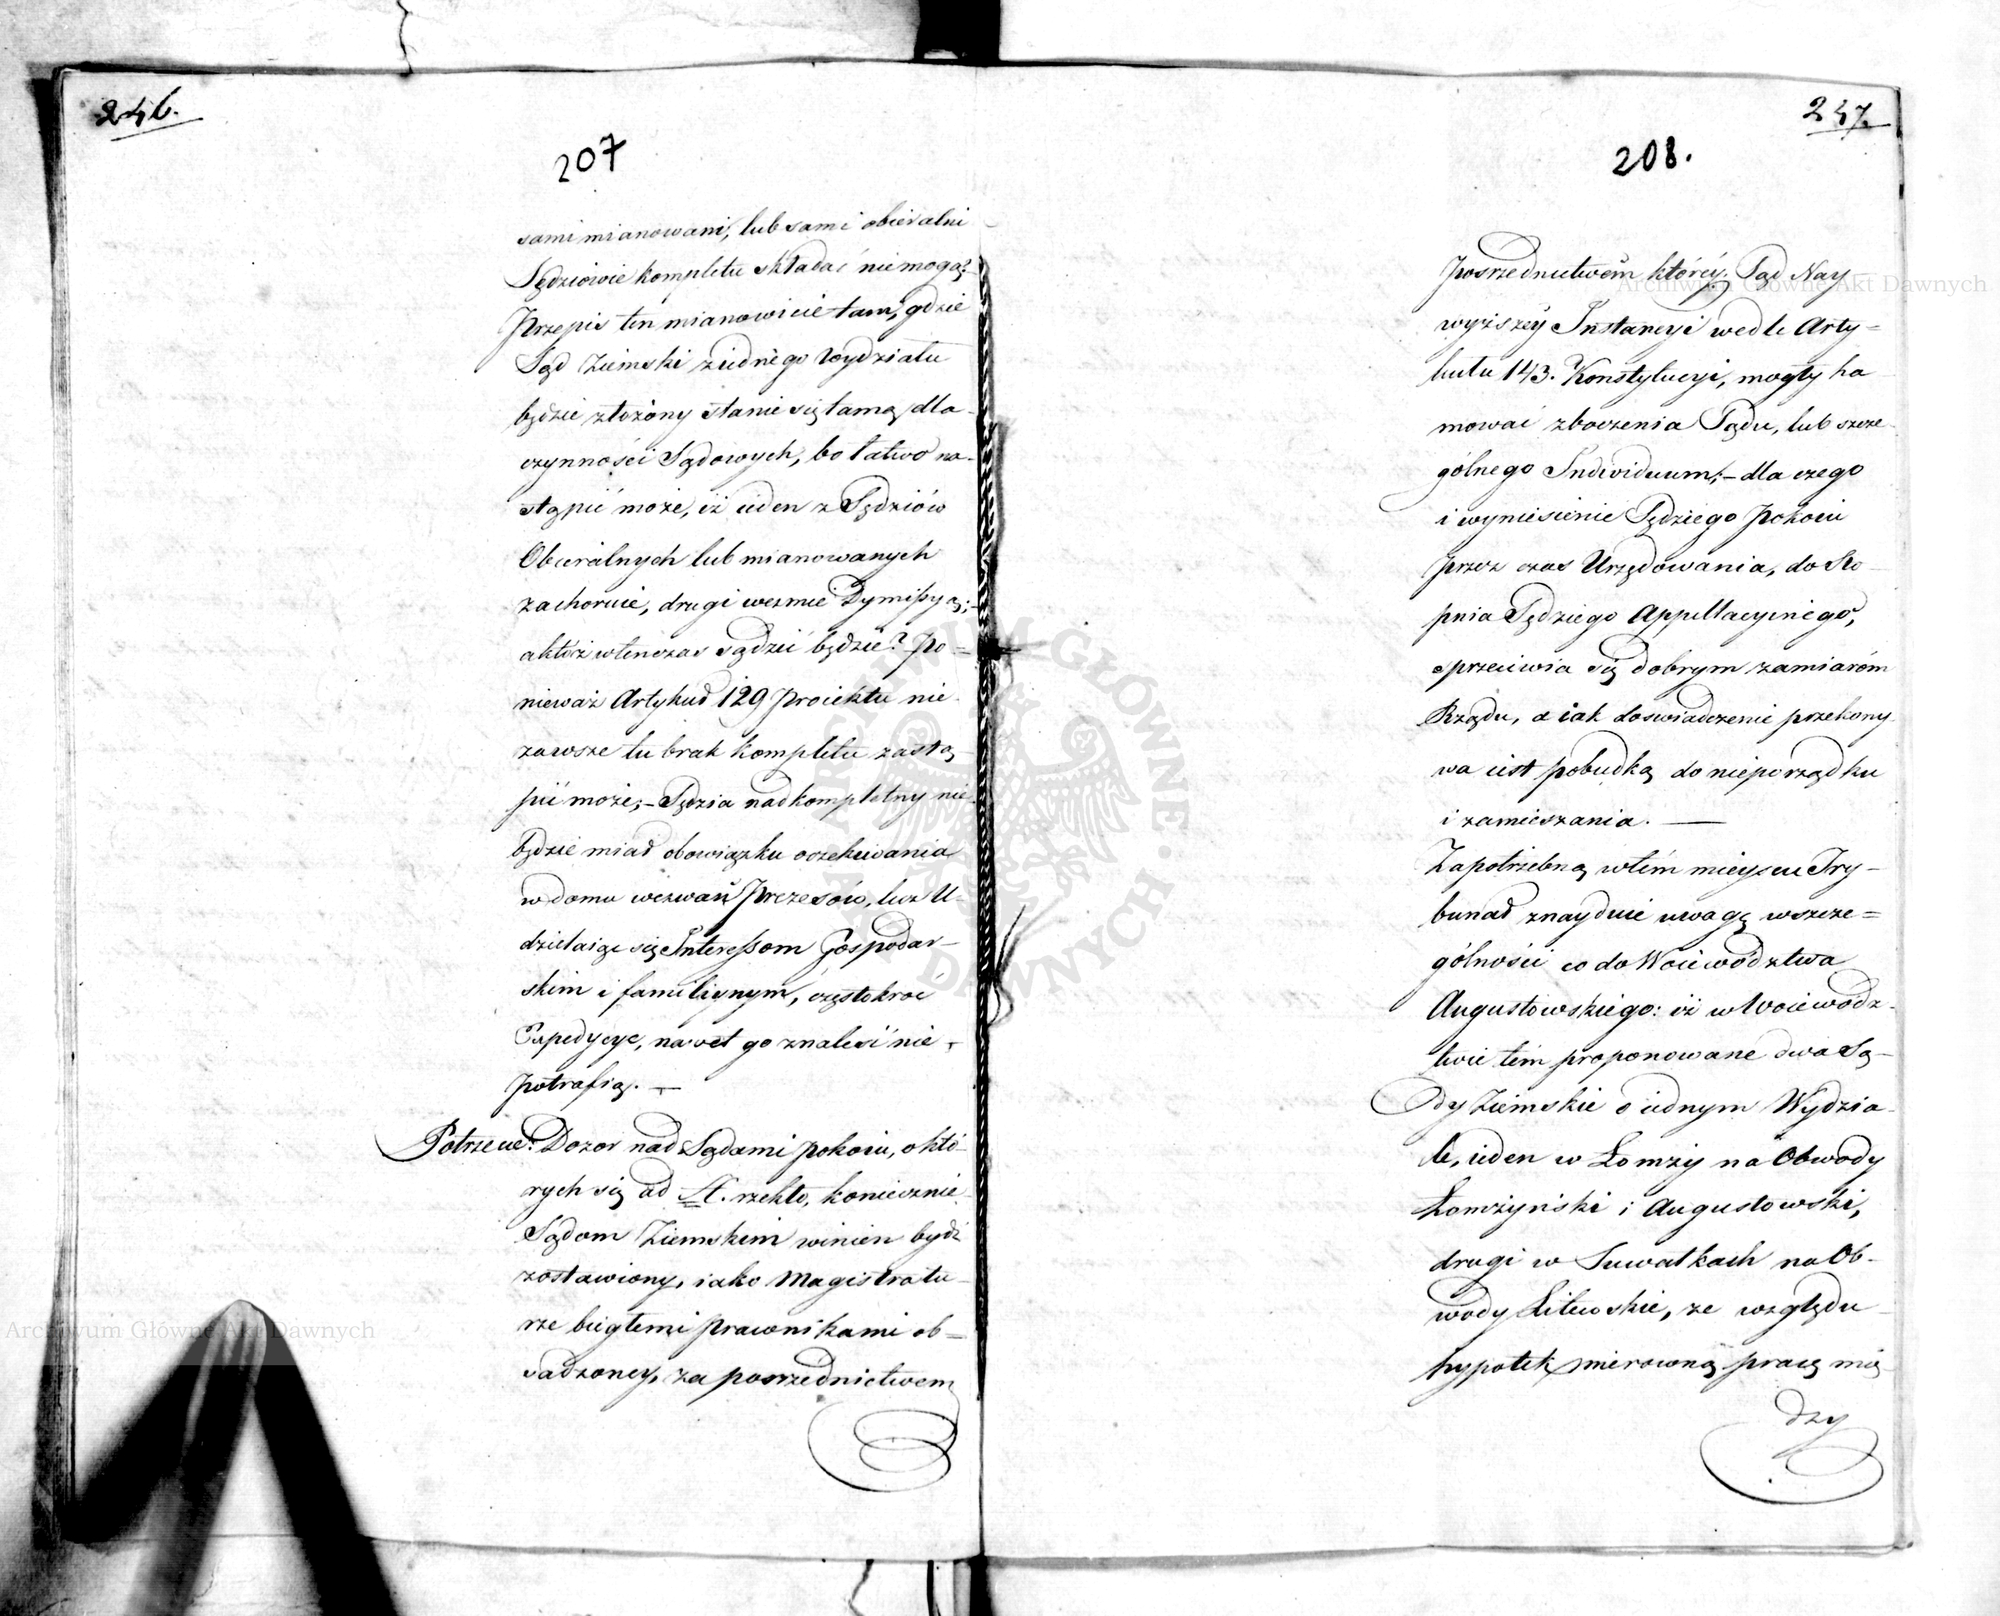 246.
207
sami mianowani, lub sami obieralni
Sędziowie kompletu składać niemogą?
Przepis ten mianowicie tam, gdzie
Sąd Ziemski z iednego Wydziału
będzie złożony stanie się tamą dla
czynności Sądowych, bo łatwo na-
stąpić może, iż ieden z Sędziów
Obieralnych lub mianowanych
zachoruie, drugi wezmie Dymissyą;-
a któż wtenczas sądzić będzie? Po=
nieważ Artykuł 129 Proiektu nie
zawsze tu brak kompletu zastą
pić może;- Sędzia nadkompletny nie
będzie miał obowiązku oczekiwania
w domu wezwań Prezesów, lecz U-
dzielaiąc się Interessom Gospodar-
skim i familiynym, częstokroć
Expedycye, nawet go znaleść nie
potrafią. —
Potrzecie: Dozor nad Sądami pokoiu, o któ-
rych się ad A. rzekło, koniecznie
Sądom Ziemskim winien bydź
zostawiony, iako Magistratu-
rze biegłemi Prawnikami ob-
sadzoney, za posrzednictwem
247.
208.
Posrzednictwem którey, Sąd Nay
wyższey Instancyi wedle Arty=
kułu 143. Konstytucyi, mogły ha
mować zboczenia Sądu, lub szcze
gólnego Individuum;- dla czego
i wyniesienie Sędziego Pokoiu
przez czas Urzędowania, do Sto
pnia Sędziego Appellacyinego,
sprzeciwia się dobrym zamiaróm
Rządu, a iak doswiadczenie przekony
wa iest pobudką do nieporządku
i zamieszania. —
Za potrzebną w tém mieyscu Try-
bunał znayduie uwagę w szcze=
gólności co do Woiewództwa
Augustowskiego: iż w Woiewódz-
twie tém proponowane dwa Są-
dy Ziemskie o iednym Wydzia-
le, ieden w Łomży na Obwody
Łomżyński i Augustowski,
drugi w Suwałkach na Ob-
wody Litewskie, ze względu
hypotek nierowną pracę mię
dzy
Archiwum Główne Akt Dawnych
Archiwum Główne Akt Dawnych
ARCHIWUM GŁÓWNE AKT DAWNYCH